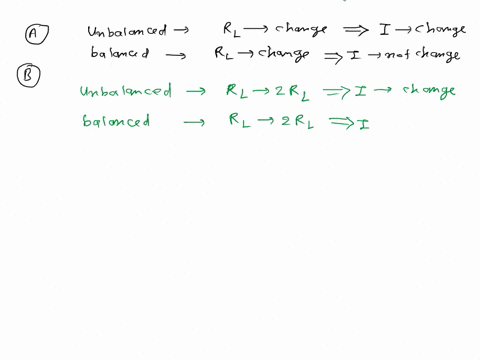 A Unbalanced → RL → change ⇒ I → change
balanced → RL → change ⇒ I → not change
B
Unbalanced → RL → 2RL ⇒ I → change
balanced → RL → 2RL ⇒ I